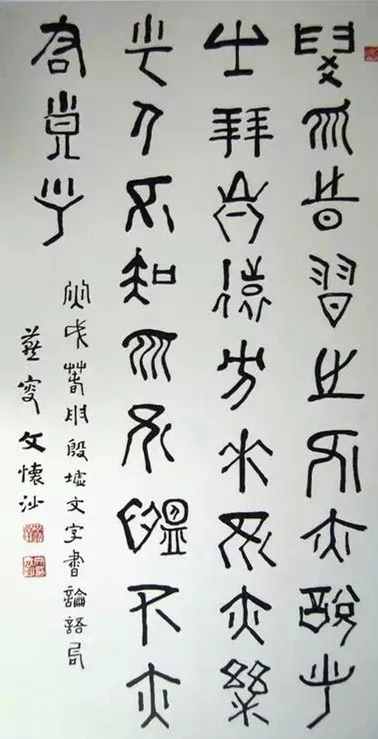 學而時習之不亦說乎
有朋自遠方來不亦樂
乎人不知而不慍不亦
君子乎
戊春用殷墟文字書論語句
燕叟文懷沙